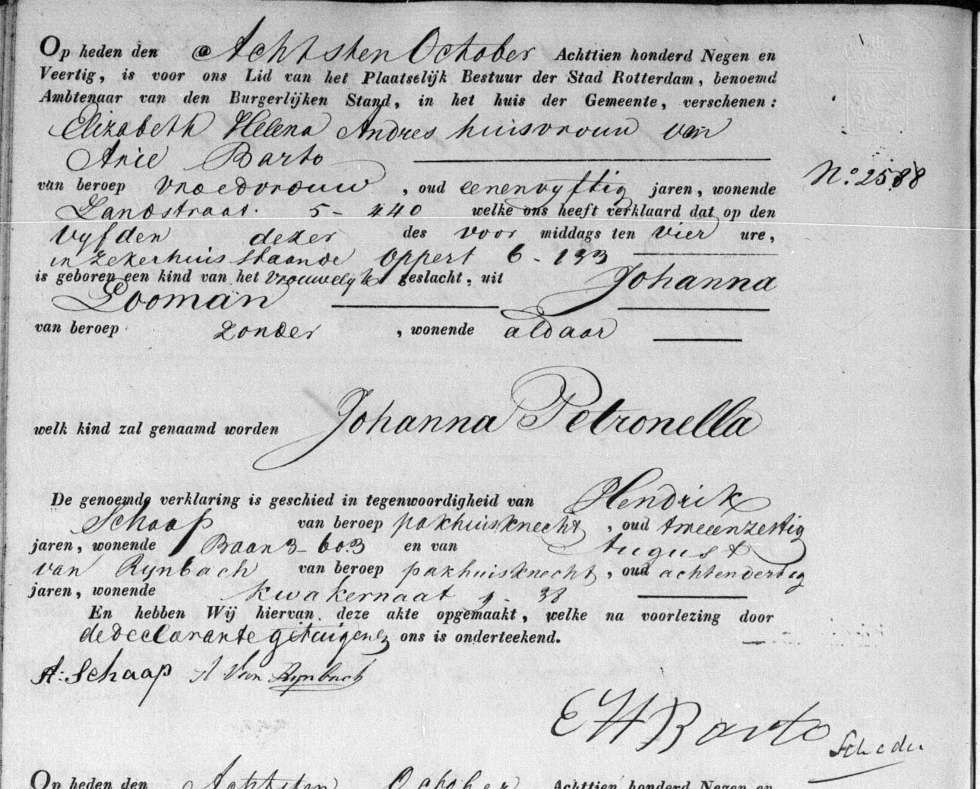 Op heden den Achtsten October Achttien honderd Negen en
Veertig, is voor ons Lid van het Plaatselijk Bestuur der Stad Rotterdam, benoemd
Ambtenaar van den Burgerlijken Stand, in het huis der Gemeente, verschenen:
Elizabeth Helena Andres huisvrouw van
Arie Barto
No. 2588
van beroep vroedvrouw, oud eenenvyftig jaren, wonende
Landstraat 5-440 welke ons heeft verklaard dat op den
vyfden dezer des voor middags ten vier ure,
in zeker huis staande Oppert 6-133
is geboren een kind van het vrouwelyk geslacht, uit Johanna
Looman
van beroep zonder, wonende aldaar
welk kind zal genaamd worden Johanna Petronella
De genoemde verklaring is geschied in tegenwoordigheid van Hendrik
Schaap van beroep pakhuisknecht, oud tweeenzestig
jaren, wonende Baan 3-603 en van August
van Rynbach van beroep pakhuisknecht, oud achtendertig
jaren, wonende Kwakernaat 9-38
En hebben Wij hiervan deze akte opgemaakt, welke na voorlezing door
de declarante getuigen & ons is onderteekend.
H: Schaap A Van Rynbach
E H Barto
Op heden den Achtsten October Achttien honderd Negen en